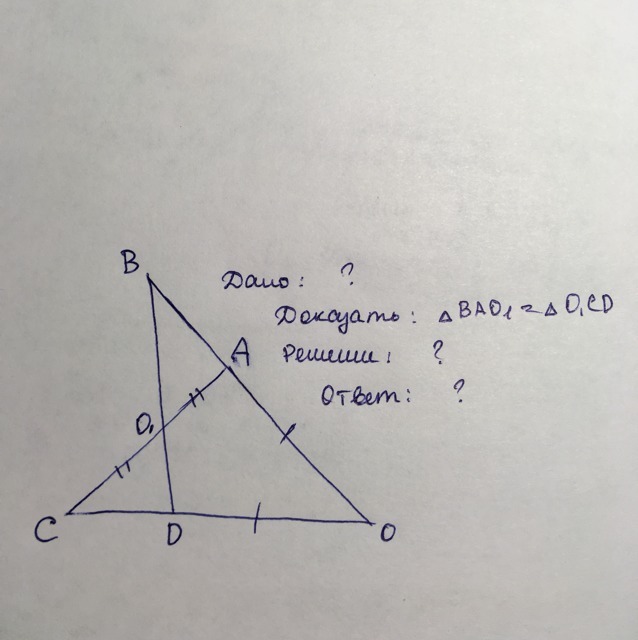 B
Дано: ?
Доказать: △BAO₁ = △O₁CD
A
Решении: ?
Ответ: ?
O₁
C
D
O